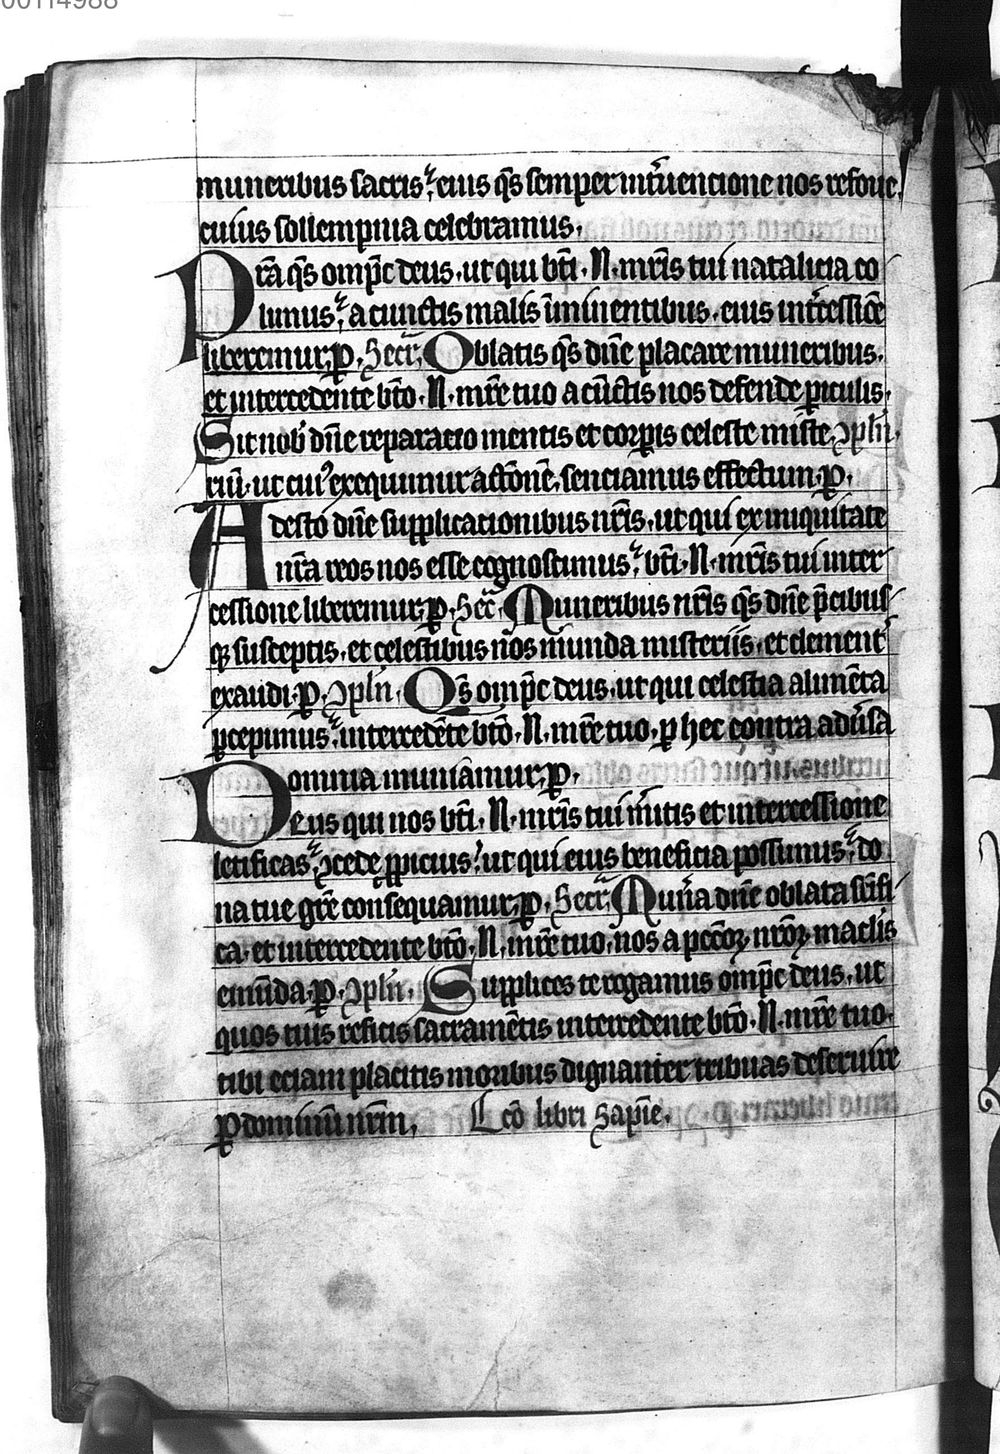 00114988
muneribus sacris. eius q̄s semper int̄uencione nos refoue,
cuius sollempnia celebramus.
Pr̄a q̄s omp̄c deus. ut qui bt̄i. N. mr̄is tui natalicia co
limus. a cunctis malis īminentibus. eius int̄cessiōe
liberemur. ꝑ. Secr̄. Oblatis q̄s dn̄e placare muneribus.
et intercedente bt̄o. N. mr̄e tuo a cūctis nos defende ꝑiculis.
Sit nob̄ dn̄e reparatio mentis et corꝑis celeste miste ꝯpln̄.
riū. ut cuiꝰ exequimur actōnē. senciamus effectum. ꝑ.
Adesto dn̄e supplicationibus nr̄is. ut qui ex iniquitate
nr̄a reos nos esse cognoscimus. bt̄i. N. mr̄is tui inter
cessione liberemur. ꝑ. Sec̄r. Muneribus nr̄is q̄s dn̄e p̄cibus
qꝫ susceptis. et celestibus nos munda misteriis. et clement̄
exaudi. ꝑ. ꝯpln̄. Q̄s omp̄c deus. ut qui celestia alimēta
ꝑcepimus. intercedēte bt̄o. N. mr̄e tuo. ꝑ hec contra adūsa
omnia muniamur. ꝑ.
Deus qui nos bt̄i. N. mr̄is tui m̄itis et intercessione
letificas. ꝯcede ꝓpicius. ut qui eius beneficia possimus. do
na tue gr̄e consequamur. ꝑ. Secr̄. Mun̄a dn̄e oblata sc̄ifi
ca. et intercedente bt̄o. N. mr̄e tuo. nos a pcc̄oꝝ nr̄oꝝ maclis
emūda. ꝑ. ꝯpln̄. Supplices te rogamus omp̄c deus. ut
quos tuis reficis sacramētis intercedente bt̄o. N. mr̄e tuo.
tibi eciam placitis moribus dignanter tribuas deseruire
ꝑ dominū nr̄m. Lc̄o libri Sapīe.